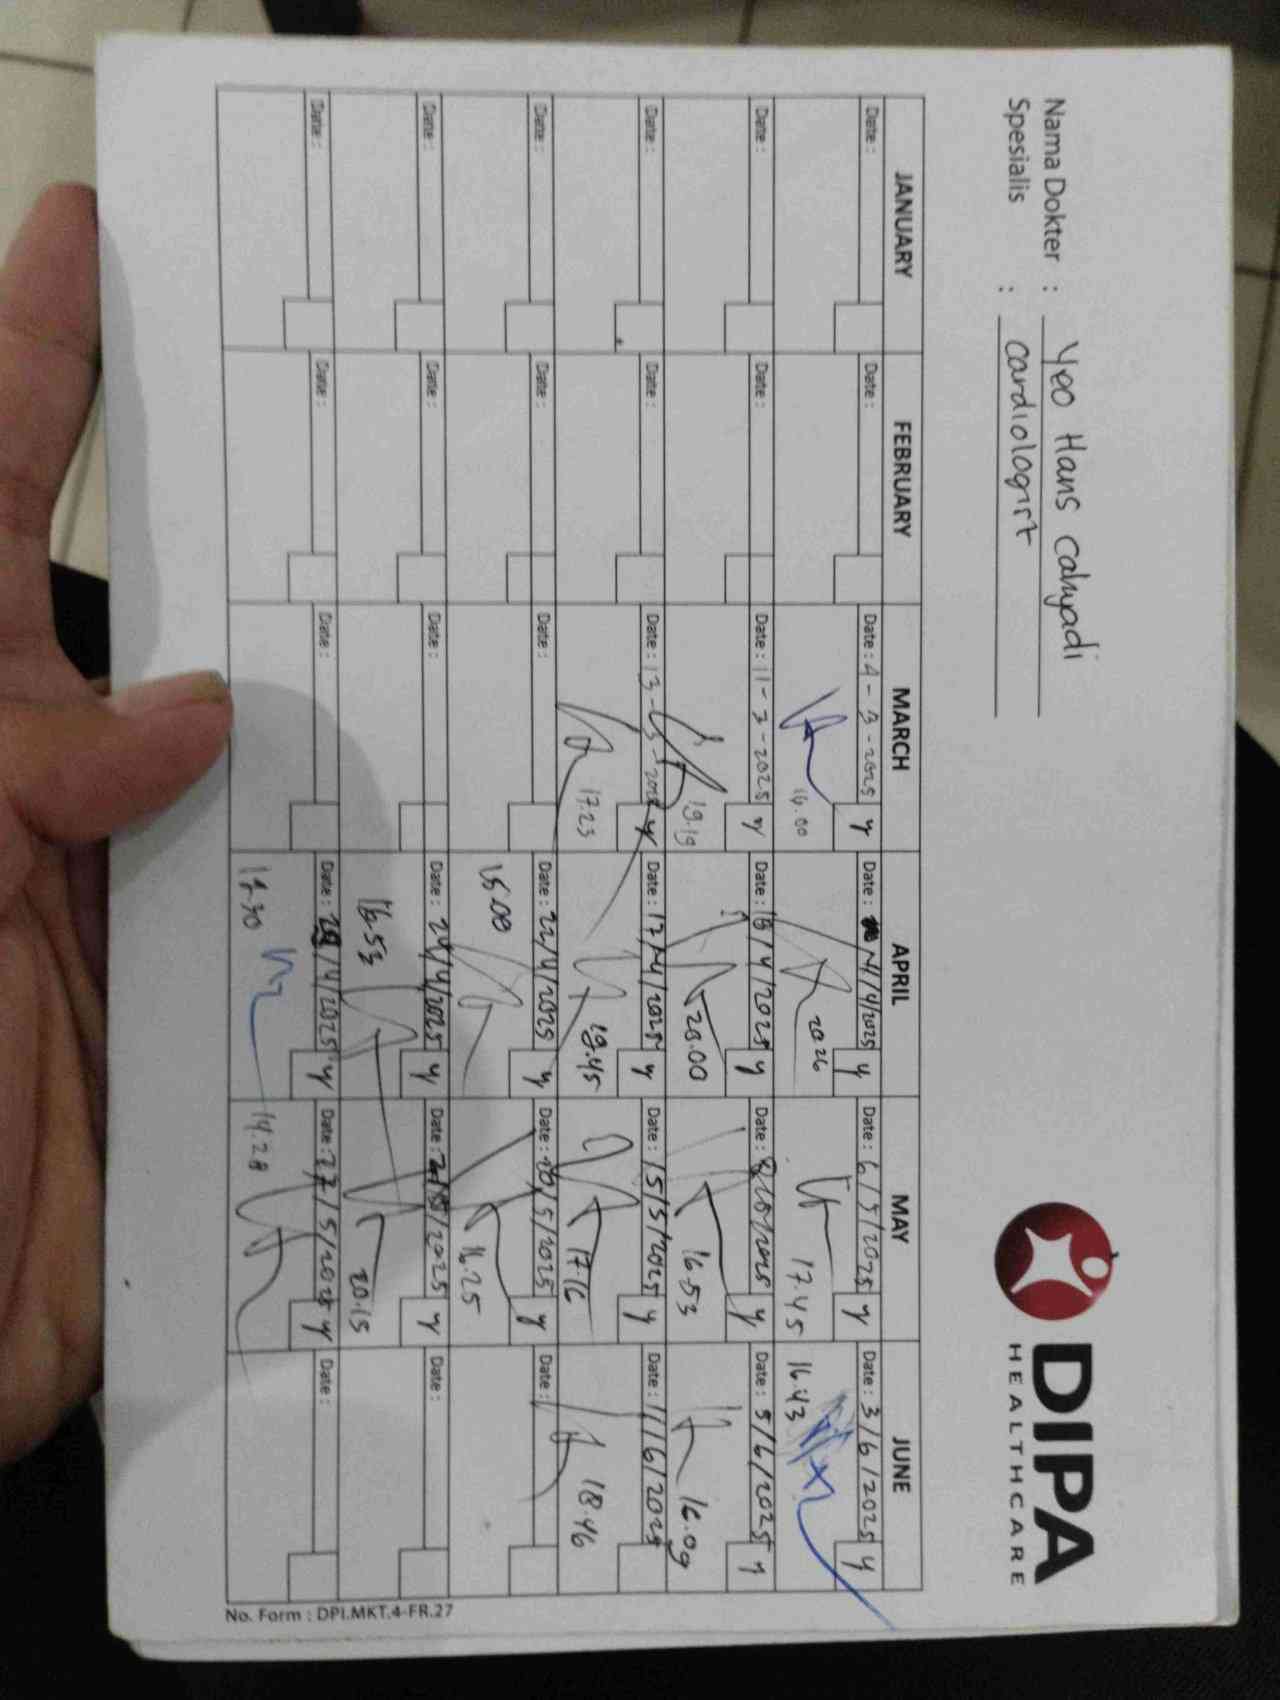 Nama Dokter : Yeo Hans Cahyadi
Spesialis : Cardiologist
DIPA
HEALTHCARE
JANUARY FEBRUARY MARCH APRIL MAY JUNE
Date : Date : Date : 4-3-2025 y Date : /4/2025 y Date : 6/5/2025 y Date : 3/6/2025 y
16.00 20.26 17.45 16.43
Date : Date : Date : 11-3-2025 y Date : /4/2025 y Date : y Date : 5/6/2025 y
19.19 20.00 16.53 16.09
Date : Date : Date : 13-03-2025 y Date : 17/4/2025 y Date : 15/5/2025 y Date : 11/6/2025
17.23 19.45 17.16 18.46
Date : Date : Date : Date : 22/4/2025 y Date : 20/5/2025 y Date :
15.00 16.25
Date : Date : Date : Date : 24/4/2025 y Date : y Date :
16.53 20.15
Date : Date : Date : Date : /4/2025 y Date : 27/5/2025 y Date :
14.28
No. Form : DPI.MKT.4-FR.27